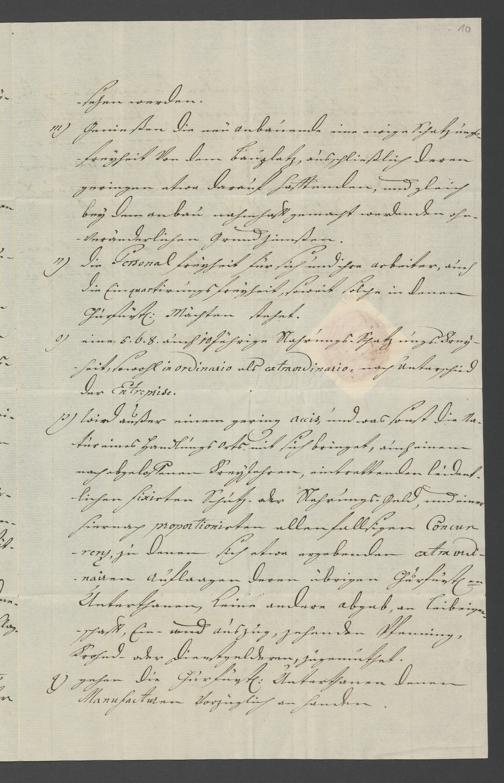 10
-sehen werden.
m) Geniessen die neu anbauende eine ewige Schatzungs-
-freyheit von dem Bauplatz, ausschließlich deren
geringen etwa darauf hafftenden, und gleich
bey dem anbau nahmhafft gemacht werdenden ohn-
-veränderlichen Grundzinnsen.
n) die Personal freyheit für sich und ihre arbeiter, auch
die Einquartirungs freyheit, soweit solche in denen
Churfürstl: Mächten stehet.
o) eine 5. 6. 8. auch 10 jährige Nahrungs Schatzungs Frey-
-heit, sowohl in ordinario als extraordinario, nach unterschied
der Entreprise.
p) wird außer einem gering accis, und was sonst die Na-
-tur eines Handlungs Orts mit sich bringet, auch einem
nach abgelofenen Freyjahren, eintrettenden leident-
lichen fixirten Schutz- oder Nahrungs-Geld, und einer
hiernach proportionirten allenfallsigen Concur-
-renz, zu denen sich etwa ergebenden extraordi-
-nairen Auflaagen deren übrigen Churfürstl:en
Unterthanen, keine andere abgab, an Leibeigen-
-schafft, Ein- und auszug, zehenden Pfenning,
Frohnd- oder Dienstgeldern, zugemuthet.
q) gehen die Churfürstl: Unterthanen denen
Manufacturen vorzüglich an handen.